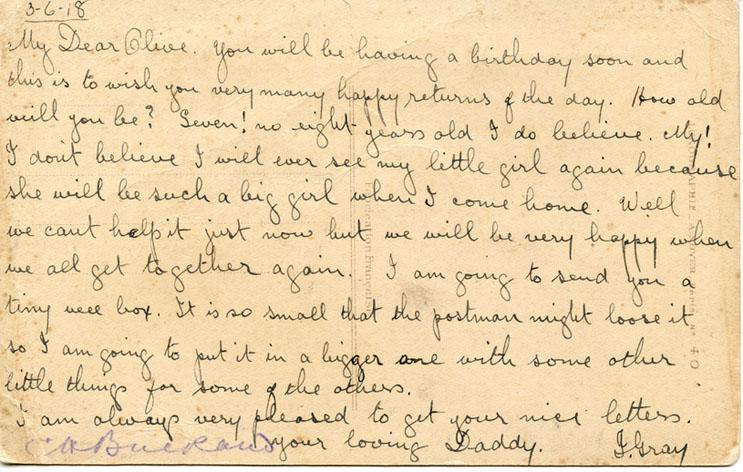 3-6-18
My Dear Olive. You will be having a birthday soon and
this is to wish you very many happy returns of the day. How old
will you be? Seven! no eight years old I do believe. My!
I don't believe I will ever see my little girl again because
she will be such a big girl when I come home. Well
we cant help it just now but we will be very happy when
we all get together again. I am going to send you a
tiny weee box. It is so small that the postman might loose it
so I am going to put it in a bigger one with some other
little things for some of the others.
I am always very pleased to get your nice letters.
your loving Daddy. J. Gray